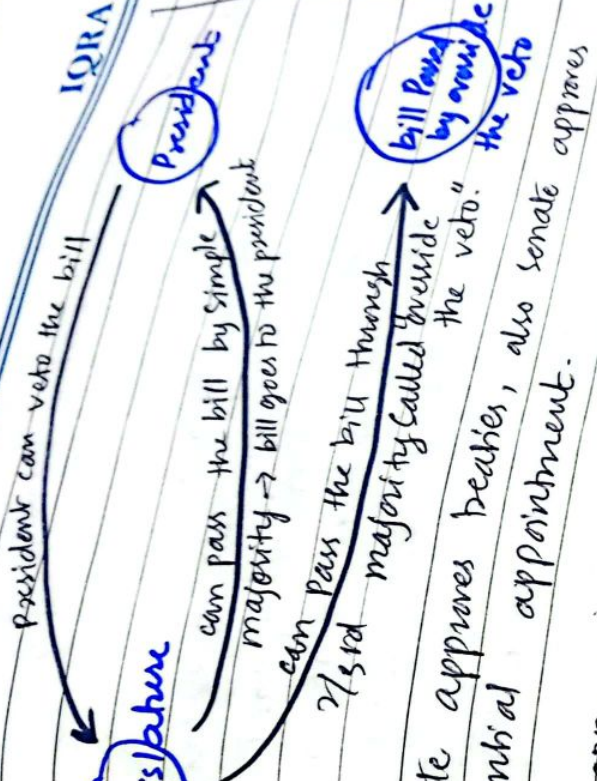 IQRA
President
President can veto the bill
can pass the bill by simple
majority → bill goes to the president
can Pass the bill through
2/3rd majority called "override
the veto."
bill Passed
by override
the veto
slature
te approves treaties, also senate approves
ntial appointment.